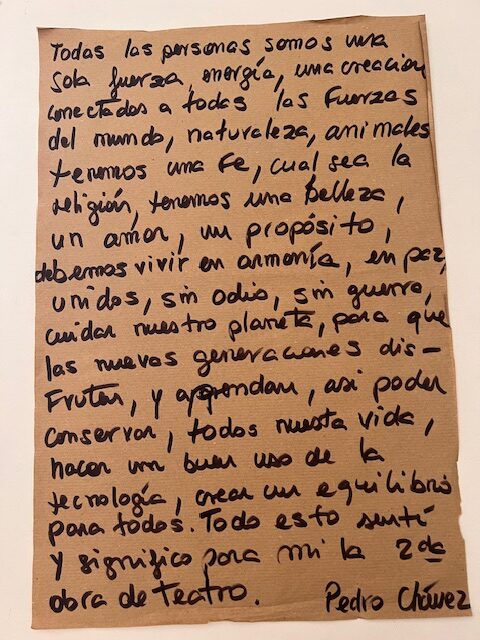 Todas las personas somos una
sola fuerza, energía, una creacion
conectados a todas las Fuerzas
del mundo, naturaleza, animales
tenemos una Fe, cual sea la
religión, tenemos una belleza,
un amor, un propósito,
debemos vivir en armonía, en paz,
unidos, sin odio, sin guerra,
cuidar nuestro planeta, para que
las nuevas generaciones dis-
Fruten, y aprendan, asi poder
conservar, todos nuesta vida,
hacer un buen uso de la
tecnología, crear un equilibrio
para todos. Todo esto sentí
y significo para mi la 2da
obra de Teatro. Pedro Chávez